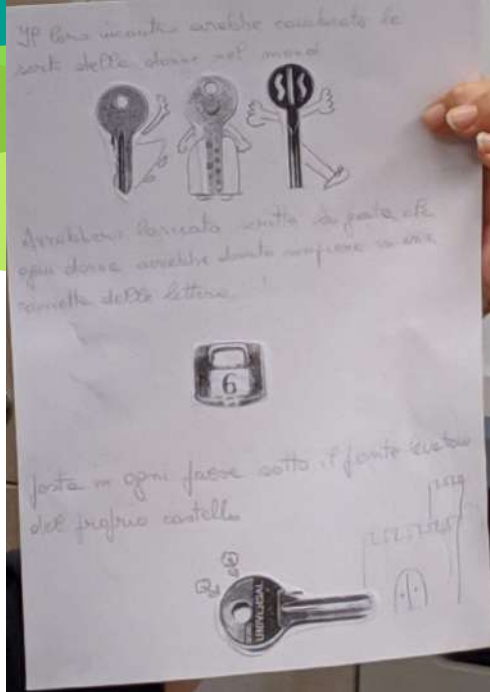 Il loro incontro avrebbe cambiato le
sorti delle donne nel mond
SIS
Avrebbero lasciato scritto la parte che
ogni donna avrebbe dovuto compiere in una
delle lettere
6
posta in ogni paese sotto il ponte levatoio
del proprio castello
UNIVERSAL